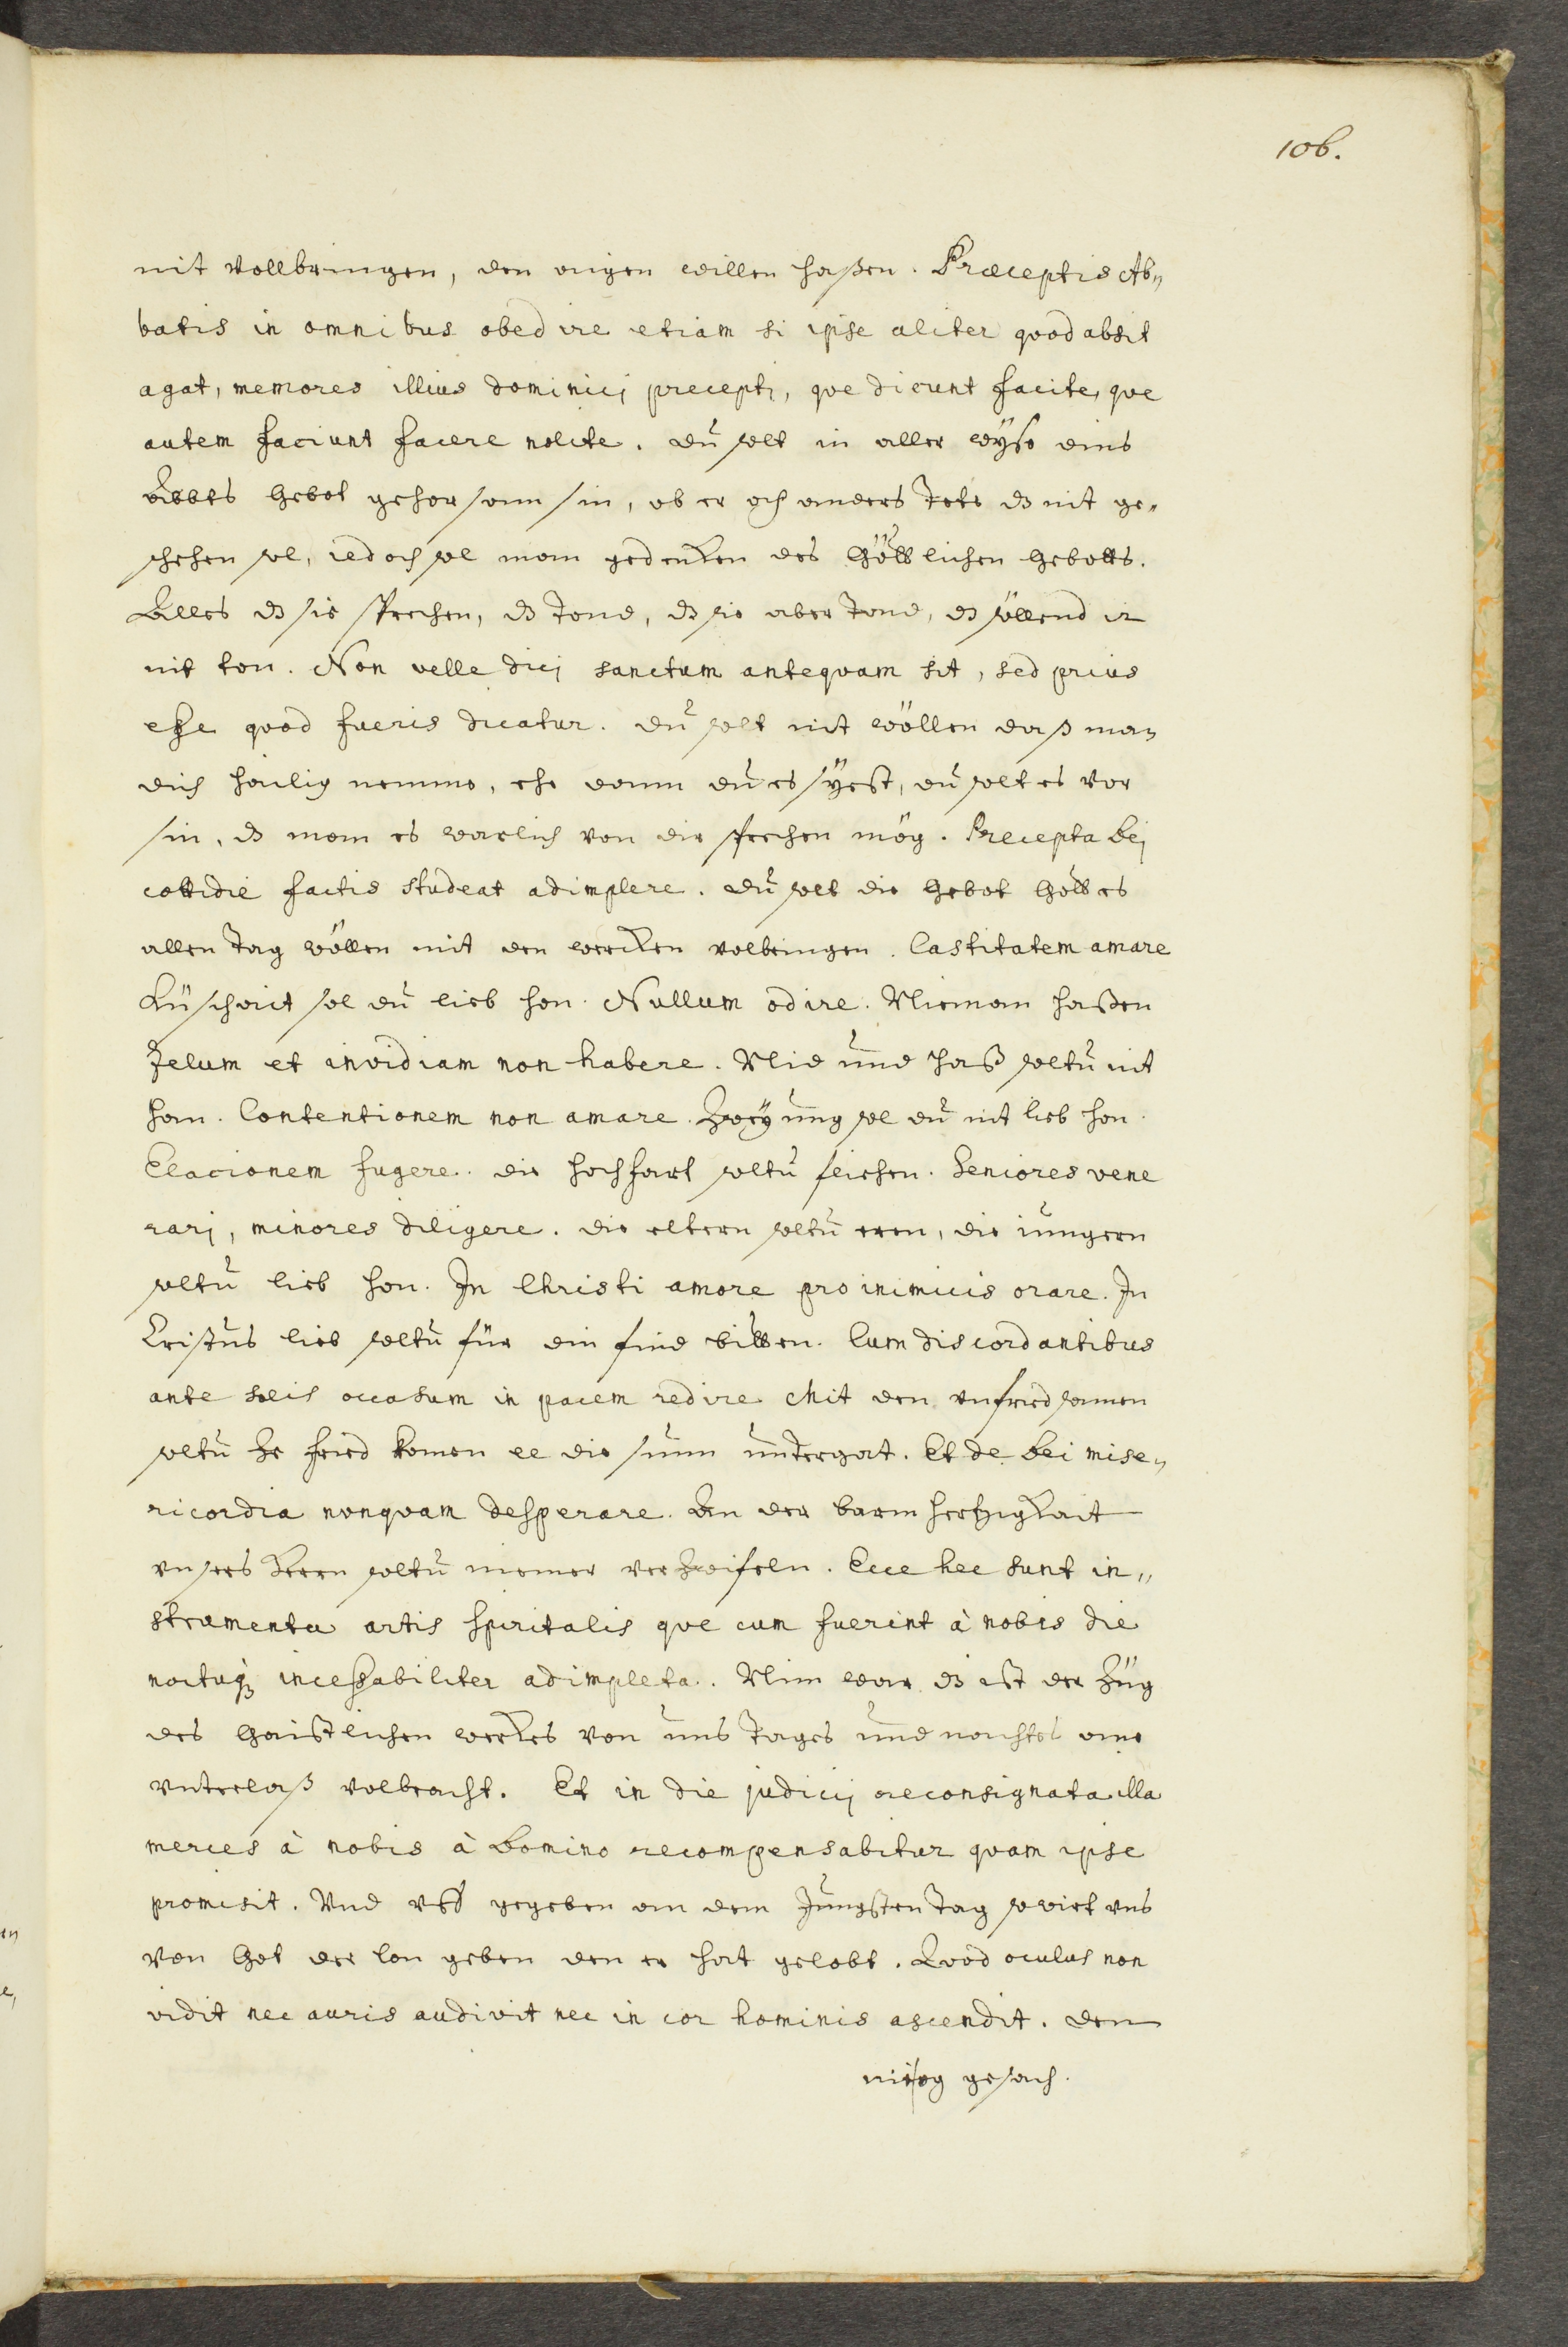 106.
nit vollbringen, den aigen willen haßen. Præceptis Ab„
batis in omnibus obedire etiam si ipse aliter quod absit
agat, memores illius dominicj preceptj, que dicunt facite, que
autem faciunt facere nolite. du solt in aller wÿse eins
Abbts Gebot gehorsam sin, ob er och anders tete dz nit ge„
schehen sol, iedoch sol man gedencken des Göttlichen Gebotts.
Alles dz sie sprechen, dz tond, dz sie aber tond, dz söllend ir
nit ton. Non velle dicj sanctum antequam sit, sed prius
eße quod fueris dicatur. du solt nit wöllen daß man
dich hailig nemme, ehe dann du es sÿest, du solt es vor
sin, dz man es warlich von dir sprechen mög. Precepta Dej
cottidie factis studeat adimplere. du solt die Gebot Gottes
allen tag wöllen mit den wercken volbringen. Castitatem amare
Küschait sol du lieb hon. Nullum odire. Nieman haßen
Zelum et invidiam non habere. Nid und Haß soltu nit
han. Contentionem non amare. Zweÿung sol du nit lieb hon.
Elacionem fugere. die hochfart soltu fliehen. Seniores vene
rarj, minores diligere. die eltern soltu eren, die iungern
soltu lieb hon. In Christi amore pro inimicis orare. In
Cristus lieb soltu für din find bitten. Cum discordantibus
ante solis occasum in pacem redire. Mit den unfridsamen
soltu ze frid komen ee die sunn untergat. Et de Dei mise„
ricordia nonquam desperare. An der barmhertzigkait
unsers Herrn soltu niemer verzweifeln. Ecce hec sunt in„
strumenta artis spiritalis que cum fuerint à nobis die
noctuqꝫ inceßabiliter adimpleta. Nim war dz ist der Züg
des Gaistlichen werckes von uns tages und nachtes ane
unterlaß volbracht. Et in die judicij reconsignata illa
merces à nobis à Domino recompensabitur quam ipse
promisit. Und uff gegeben an dem Jungsten tag so wirt uns
von Got der lon geben den er hat gelobt. Quod oculus non
vidit nec auris audivit nec in cor hominis ascendit. den
nie og gesach.